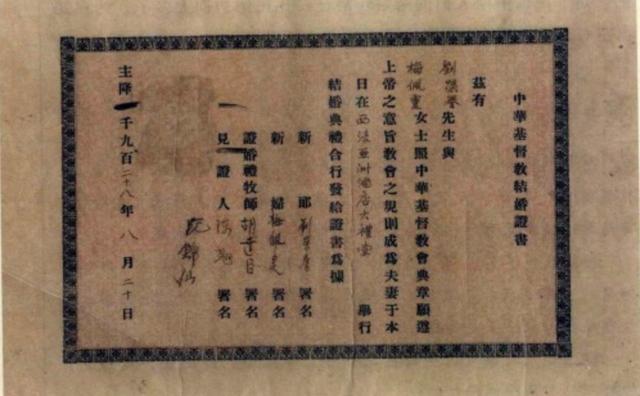 中華基督教結婚證書
茲有
劉 先生與
梅佩 女士照中華基督教會典章願遵
上帝之意旨教會之規則成爲夫妻于本
日在西濠亞洲酒店大禮堂 舉行
結婚典禮合行發給證書爲據
新郎 劉 署名
新婦 梅佩 署名
證婚禮牧師 胡 署名
見證人 署名
錦仙
主降一千九百二十八年八月二十日